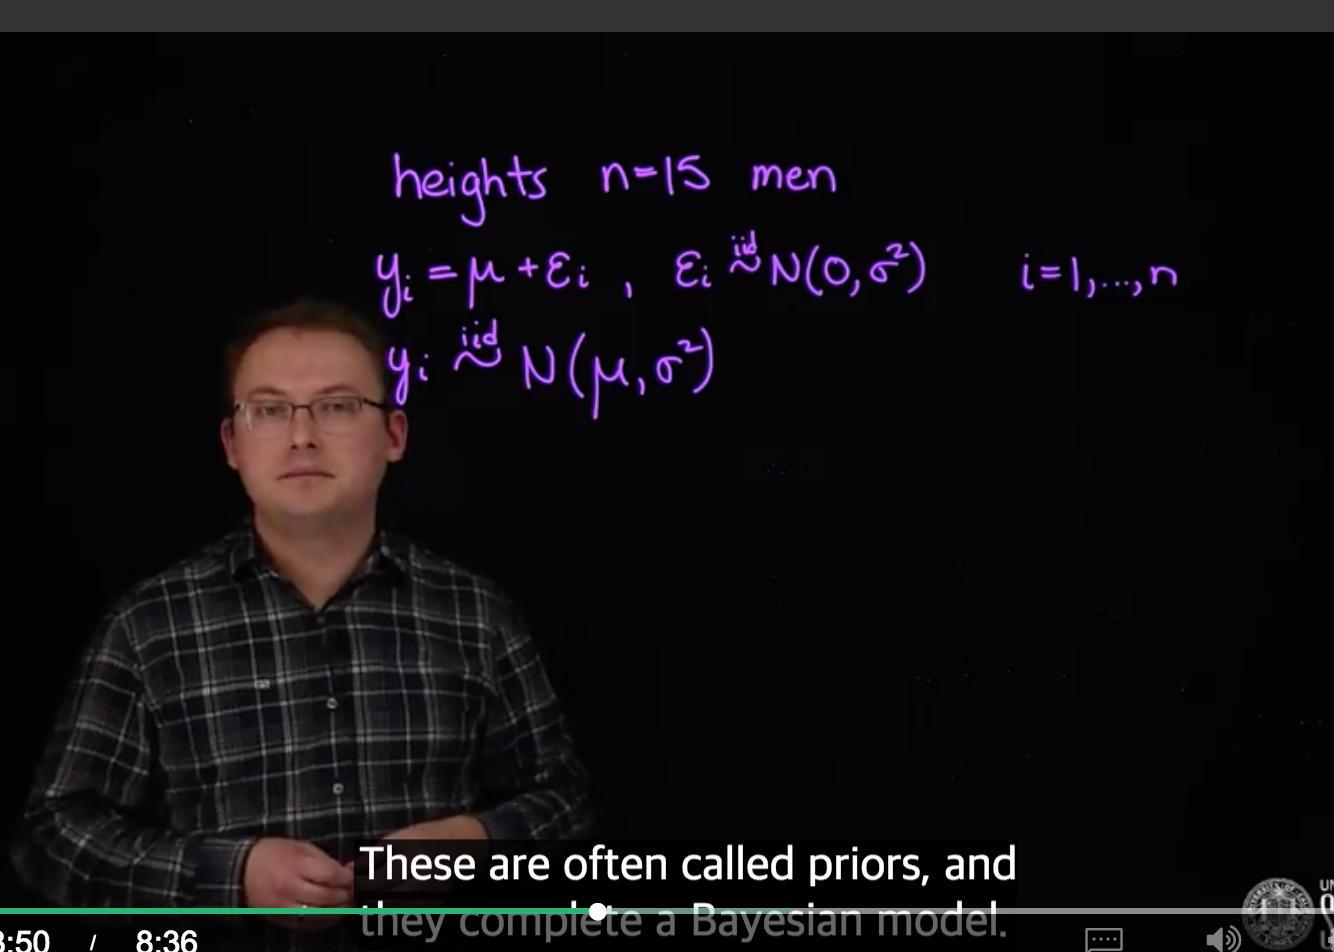 heights n=15 men
yᵢ = μ + εᵢ , εᵢ iid ~ N(0, σ²) i=1,...,n
yᵢ iid ~ N(μ, σ²)
These are often called priors, and
they complete a Bayesian model.
:50 / 8:36